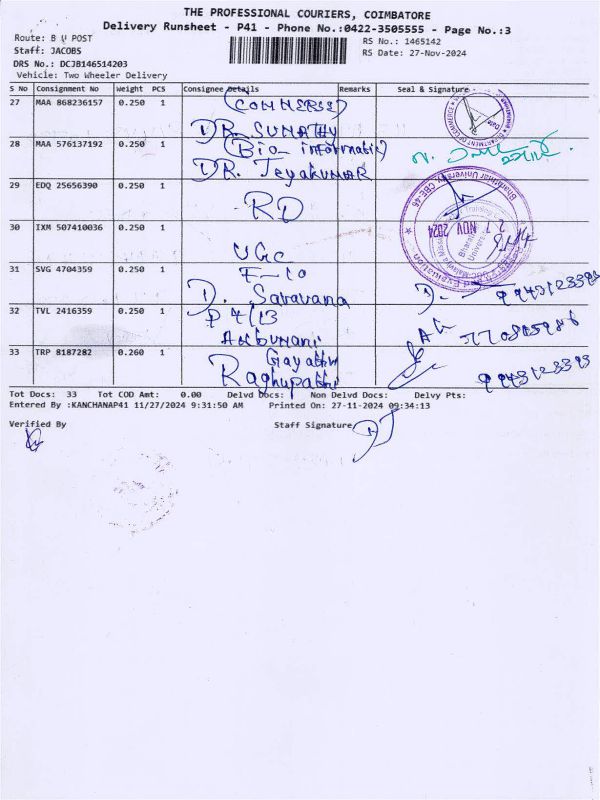 THE PROFESSIONAL COURIERS, COIMBATORE
Delivery Runsheet - P41 - Phone No.:0422-3505555 - Page No.:3
Route: B U POST
Staff: JACOBS
DRS No.: DCJB146514203
Vehicle: Two Wheeler Delivery
RS No.: 1465142
RS Date: 27-Nov-2024
S No Consignment No Weight PCS Consignee Details Remarks Seal & Signature
27 MAA 868236157 0.250 1 (COMMERSE)
DR. SUMATHY
28 MAA 576137192 0.250 1 (Bio- informatic)
DR. Jeyakumar
29 EDQ 25656390 0.250 1 RD
30 IXM 507410036 0.250 1 UGC
31 SVG 4704359 0.250 1
D. Saravana
32 TVL 2416359 0.250 1 P 4/13
Anbumani
33 TRP 8187282 0.260 1 Gayathri
Raghupathi
27 NOV 2024
Bharathiar University, CBE-46
Tot Docs: 33 Tot COD Amt: 0.00 Delvd Docs: Non Delvd Docs: Delvy Pts:
Entered By :KANCHANAP41 11/27/2024 9:31:50 AM Printed On: 27-11-2024 09:34:13
Verified By Staff Signature